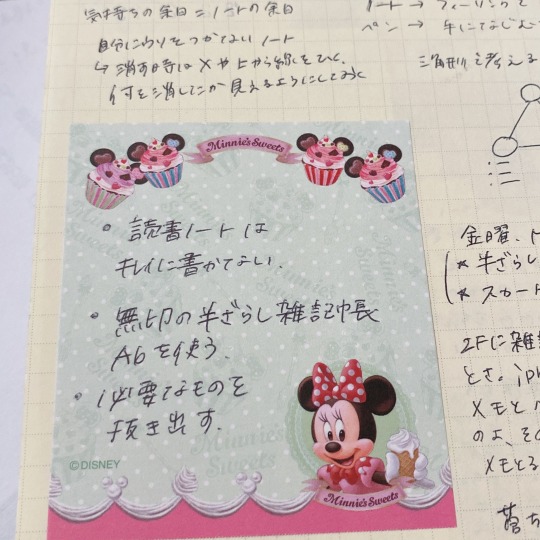 気持ちの余白=ノートの余白
自分にウソをつかない ノート
↳ 消す時は×や上から線をひく.
何を消したか見えるようにしておく
ノート → フィーリング
ペン → 手になじむ
三角形で考える
Minnie's Sweets
• 読書ノートは
キレイに書かない.
• 無印の半ざらし雑記帳
A6を使う.
• 必要なものを
抜き出す.
© DISNEY
Minnie's Sweets
金曜、
* 半ざらし
* スカート
2Fに雑
とき。iph
メモと
のよ、その
メモとる
落ち